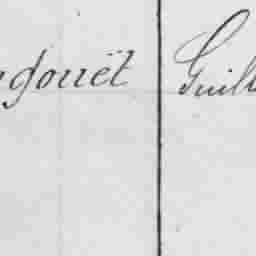 gouët Guill